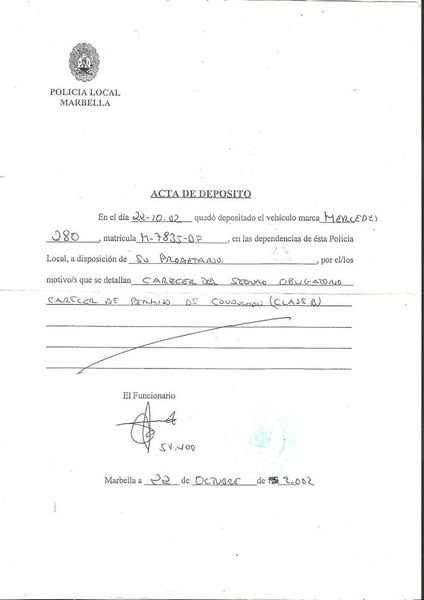 POLICIA LOCAL
MARBELLA
ACTA DE DEPOSITO
En el día 22-10-02 quedó depositado el vehículo marca MERCEDES
280, matrícula M-7835-DF, en las dependencias de ésta Policía
Local, a disposición de SU PROPIETARIO, por el/los
motivo/s que se detallan CARECER DEL SEGURO OBLIGATORIO
CARECER DE PERMISO DE CONDUCCION (CLASE B)
El Funcionario
SV.400
Marbella a 22 de OCTUBRE de 2.002